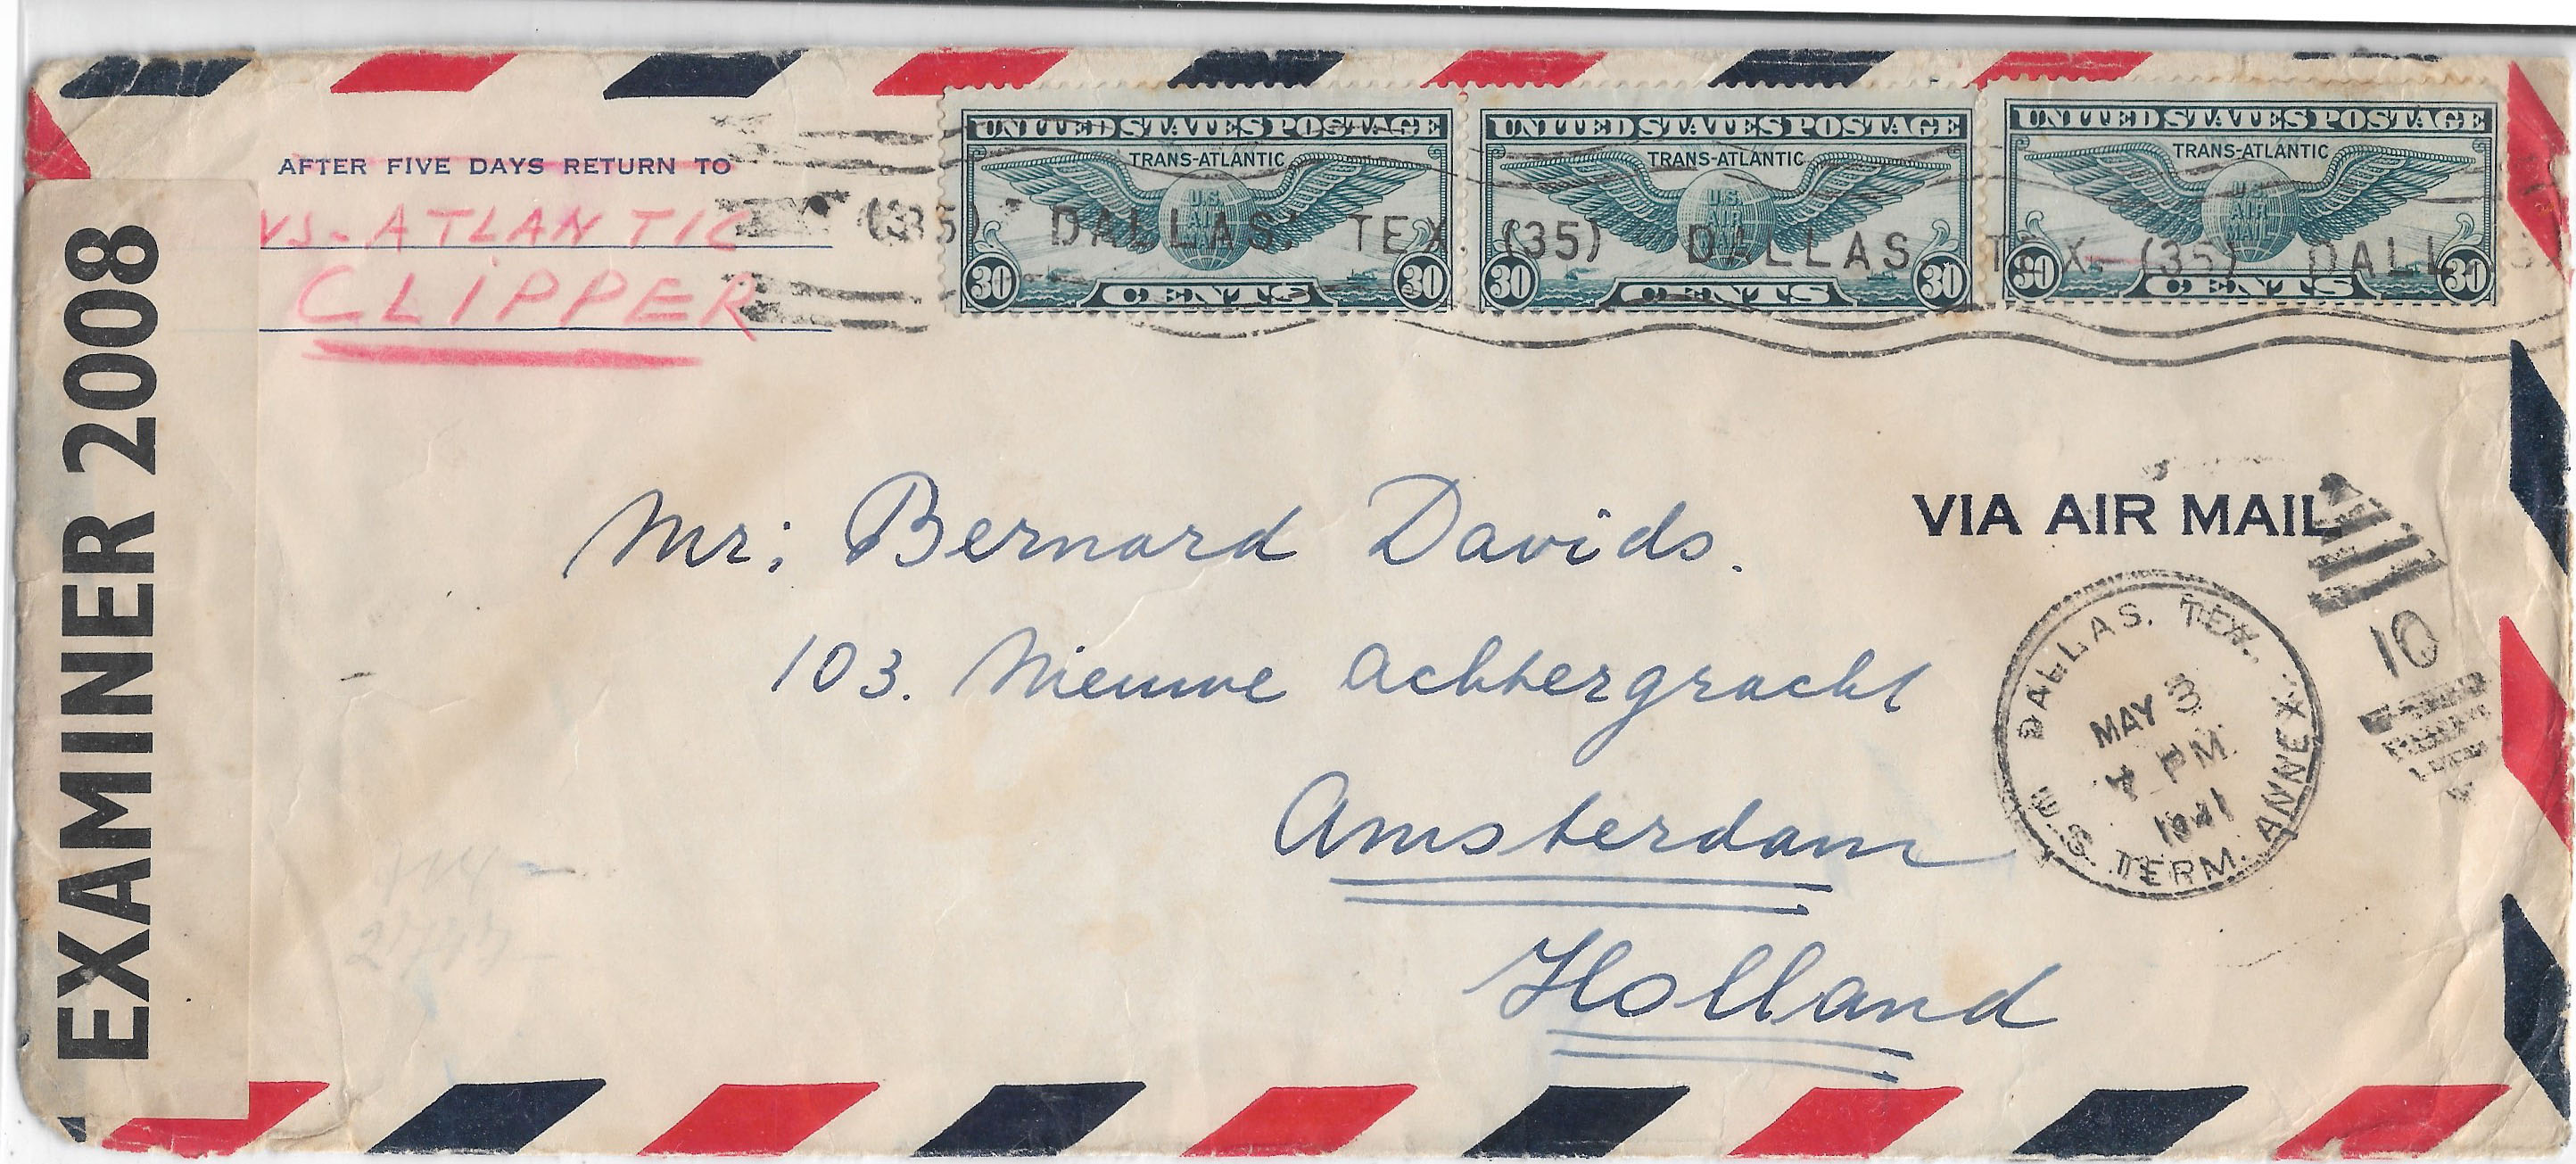 AFTER FIVE DAYS RETURN TO
VS-ATLANTIC
CLIPPER
EXAMINER 2008
UNITED STATES POSTAGE
TRANS-ATLANTIC
U.S.
AIR
MAIL
30 CENTS 30
UNITED STATES POSTAGE
TRANS-ATLANTIC
U.S.
AIR
MAIL
30 CENTS 30
UNITED STATES POSTAGE
TRANS-ATLANTIC
U.S.
AIR
MAIL
30 CENTS 30
(35) DALLAS, TEX. (35) DALLAS TEX. (35) DALL
VIA AIR MAIL
Mr: Bernard Davids.
103. Nieuwe Achtergracht
Amsterdam
Holland
DALLAS. TEX.
MAY 3
PM
1941
TERM. ANNEX
10